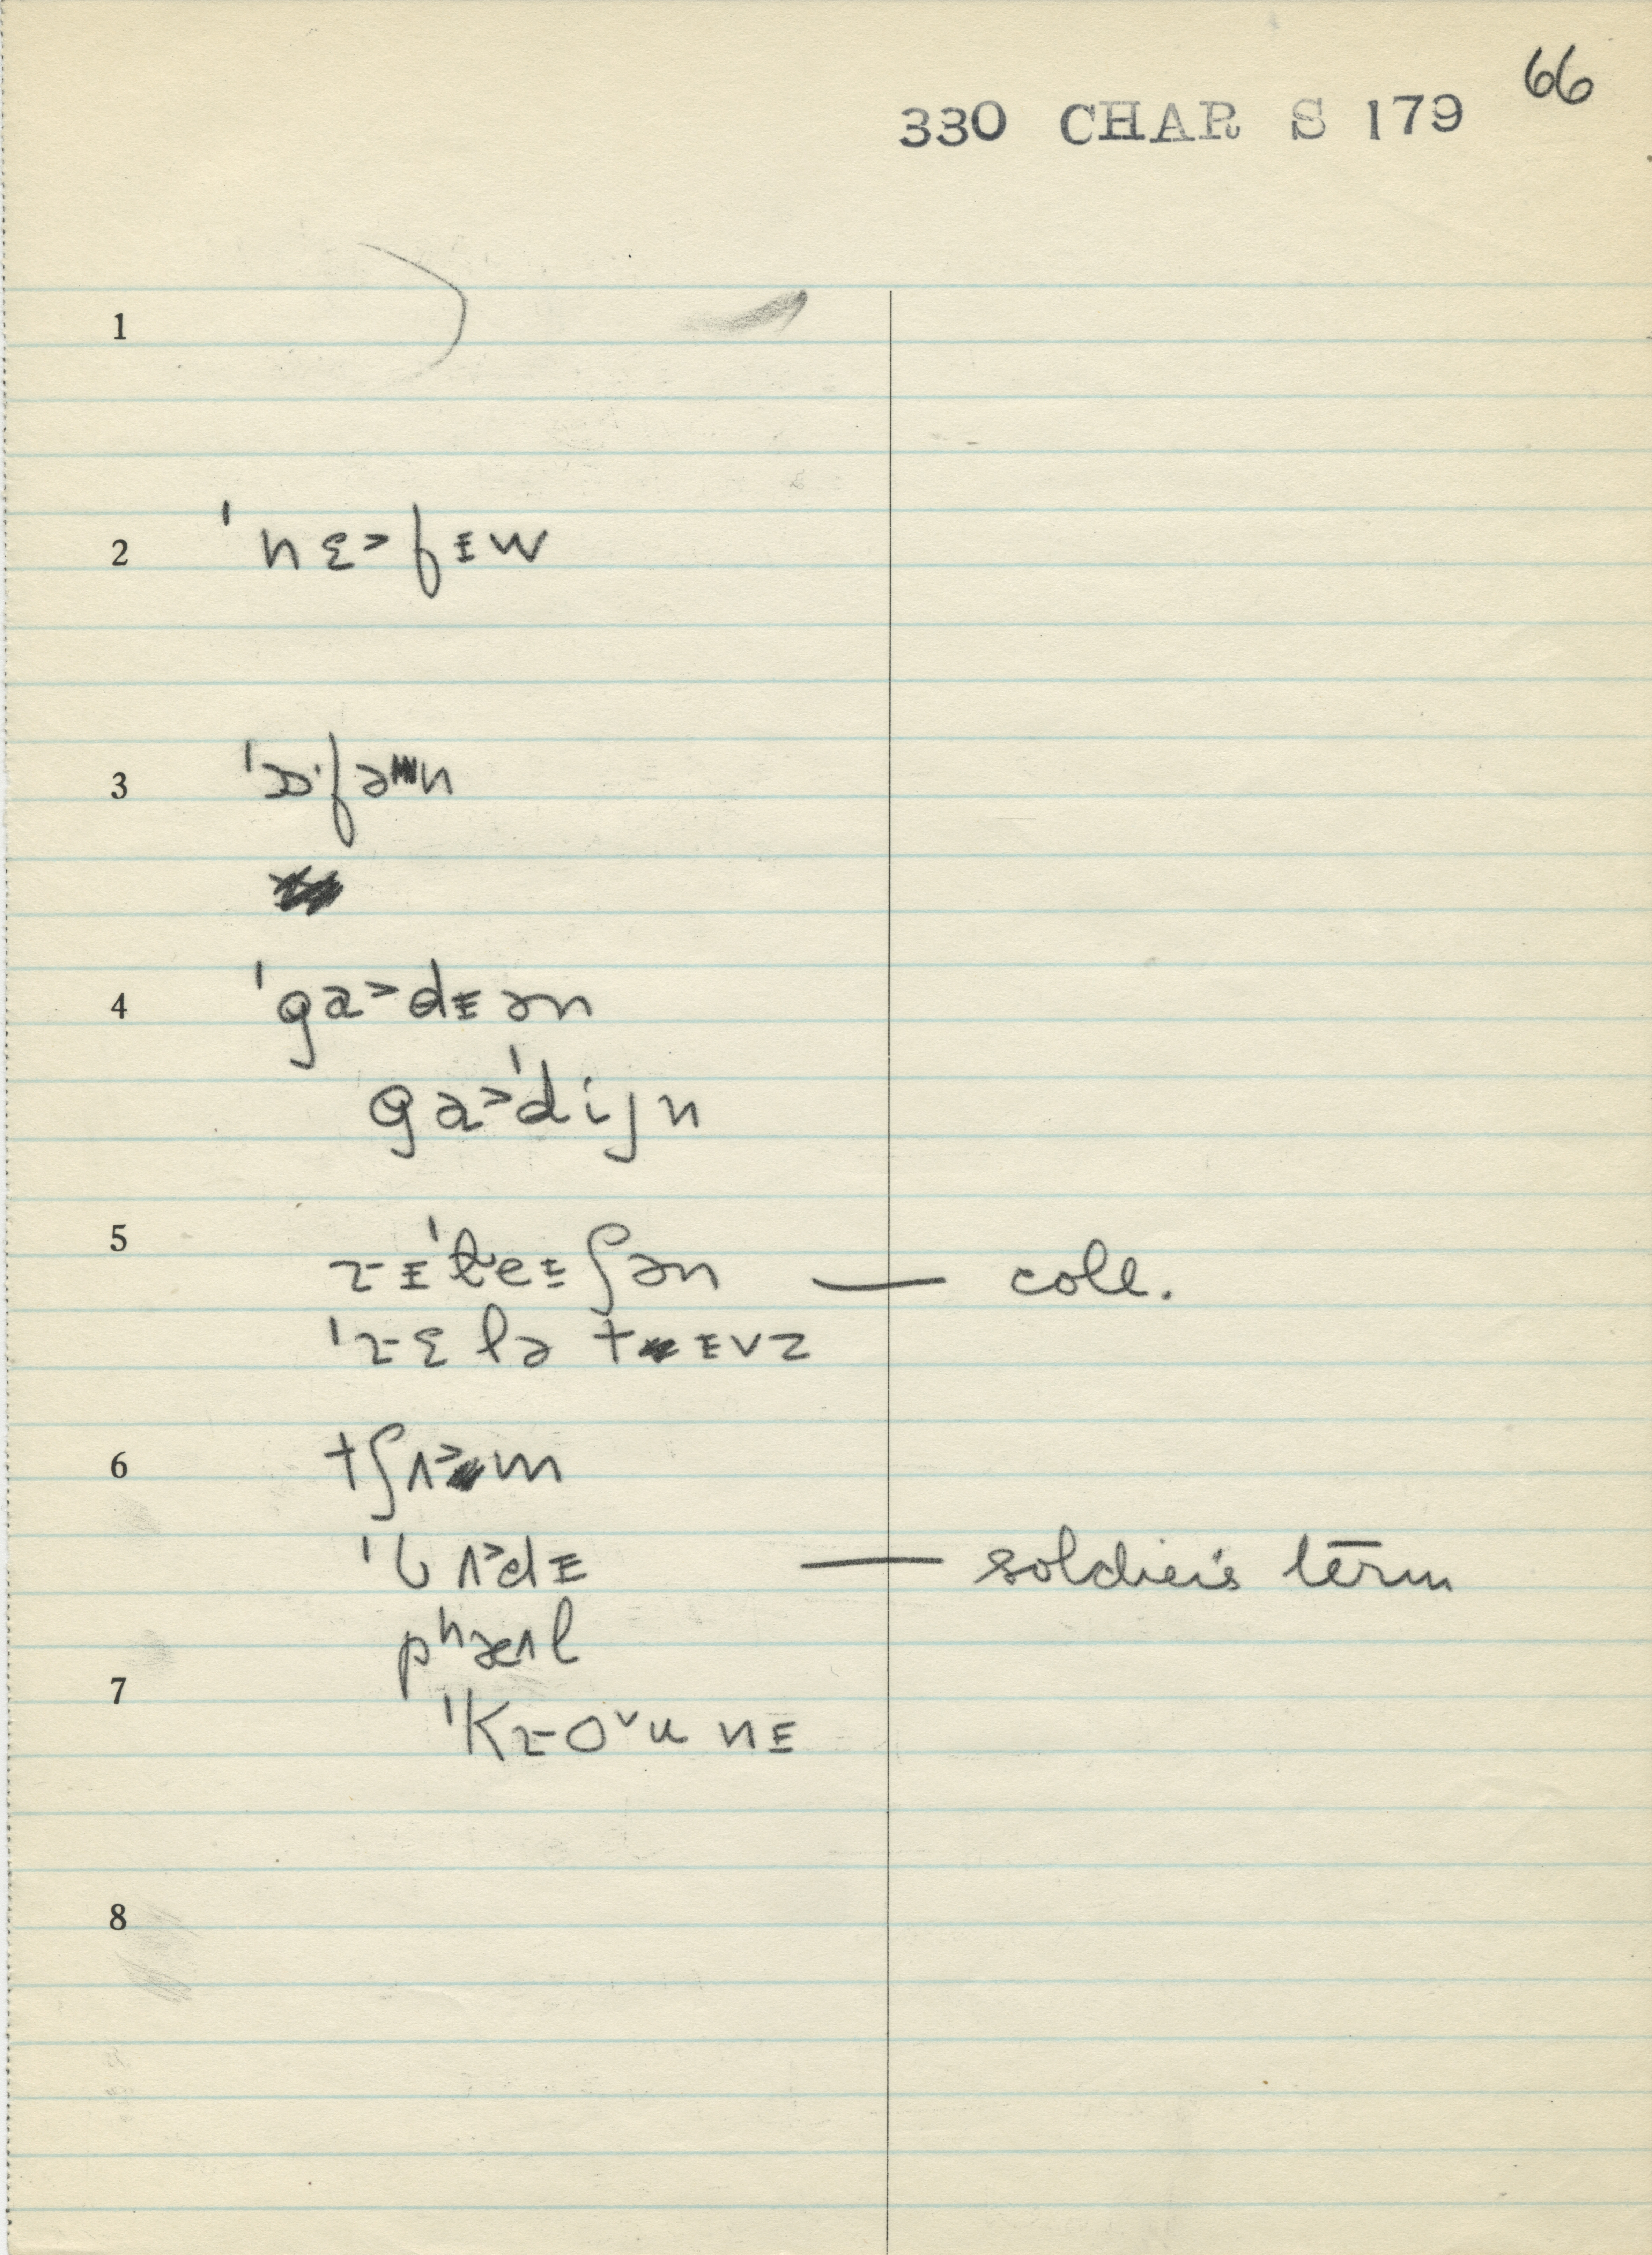 66
330 CHAR S 179
1
2 ˈnɛ˃fɪw
3 ˈɔ·fən
4 ˈga˃dɪən
ga˃ˈdijn
5 rɪˈleɪʃən — coll.
ˈrɛlətɪvz
6 tʃʌ˃m
ˈbʌ˃dɪ — soldier's term
pʰæʌl
7 ˈkro˅unɪ
8